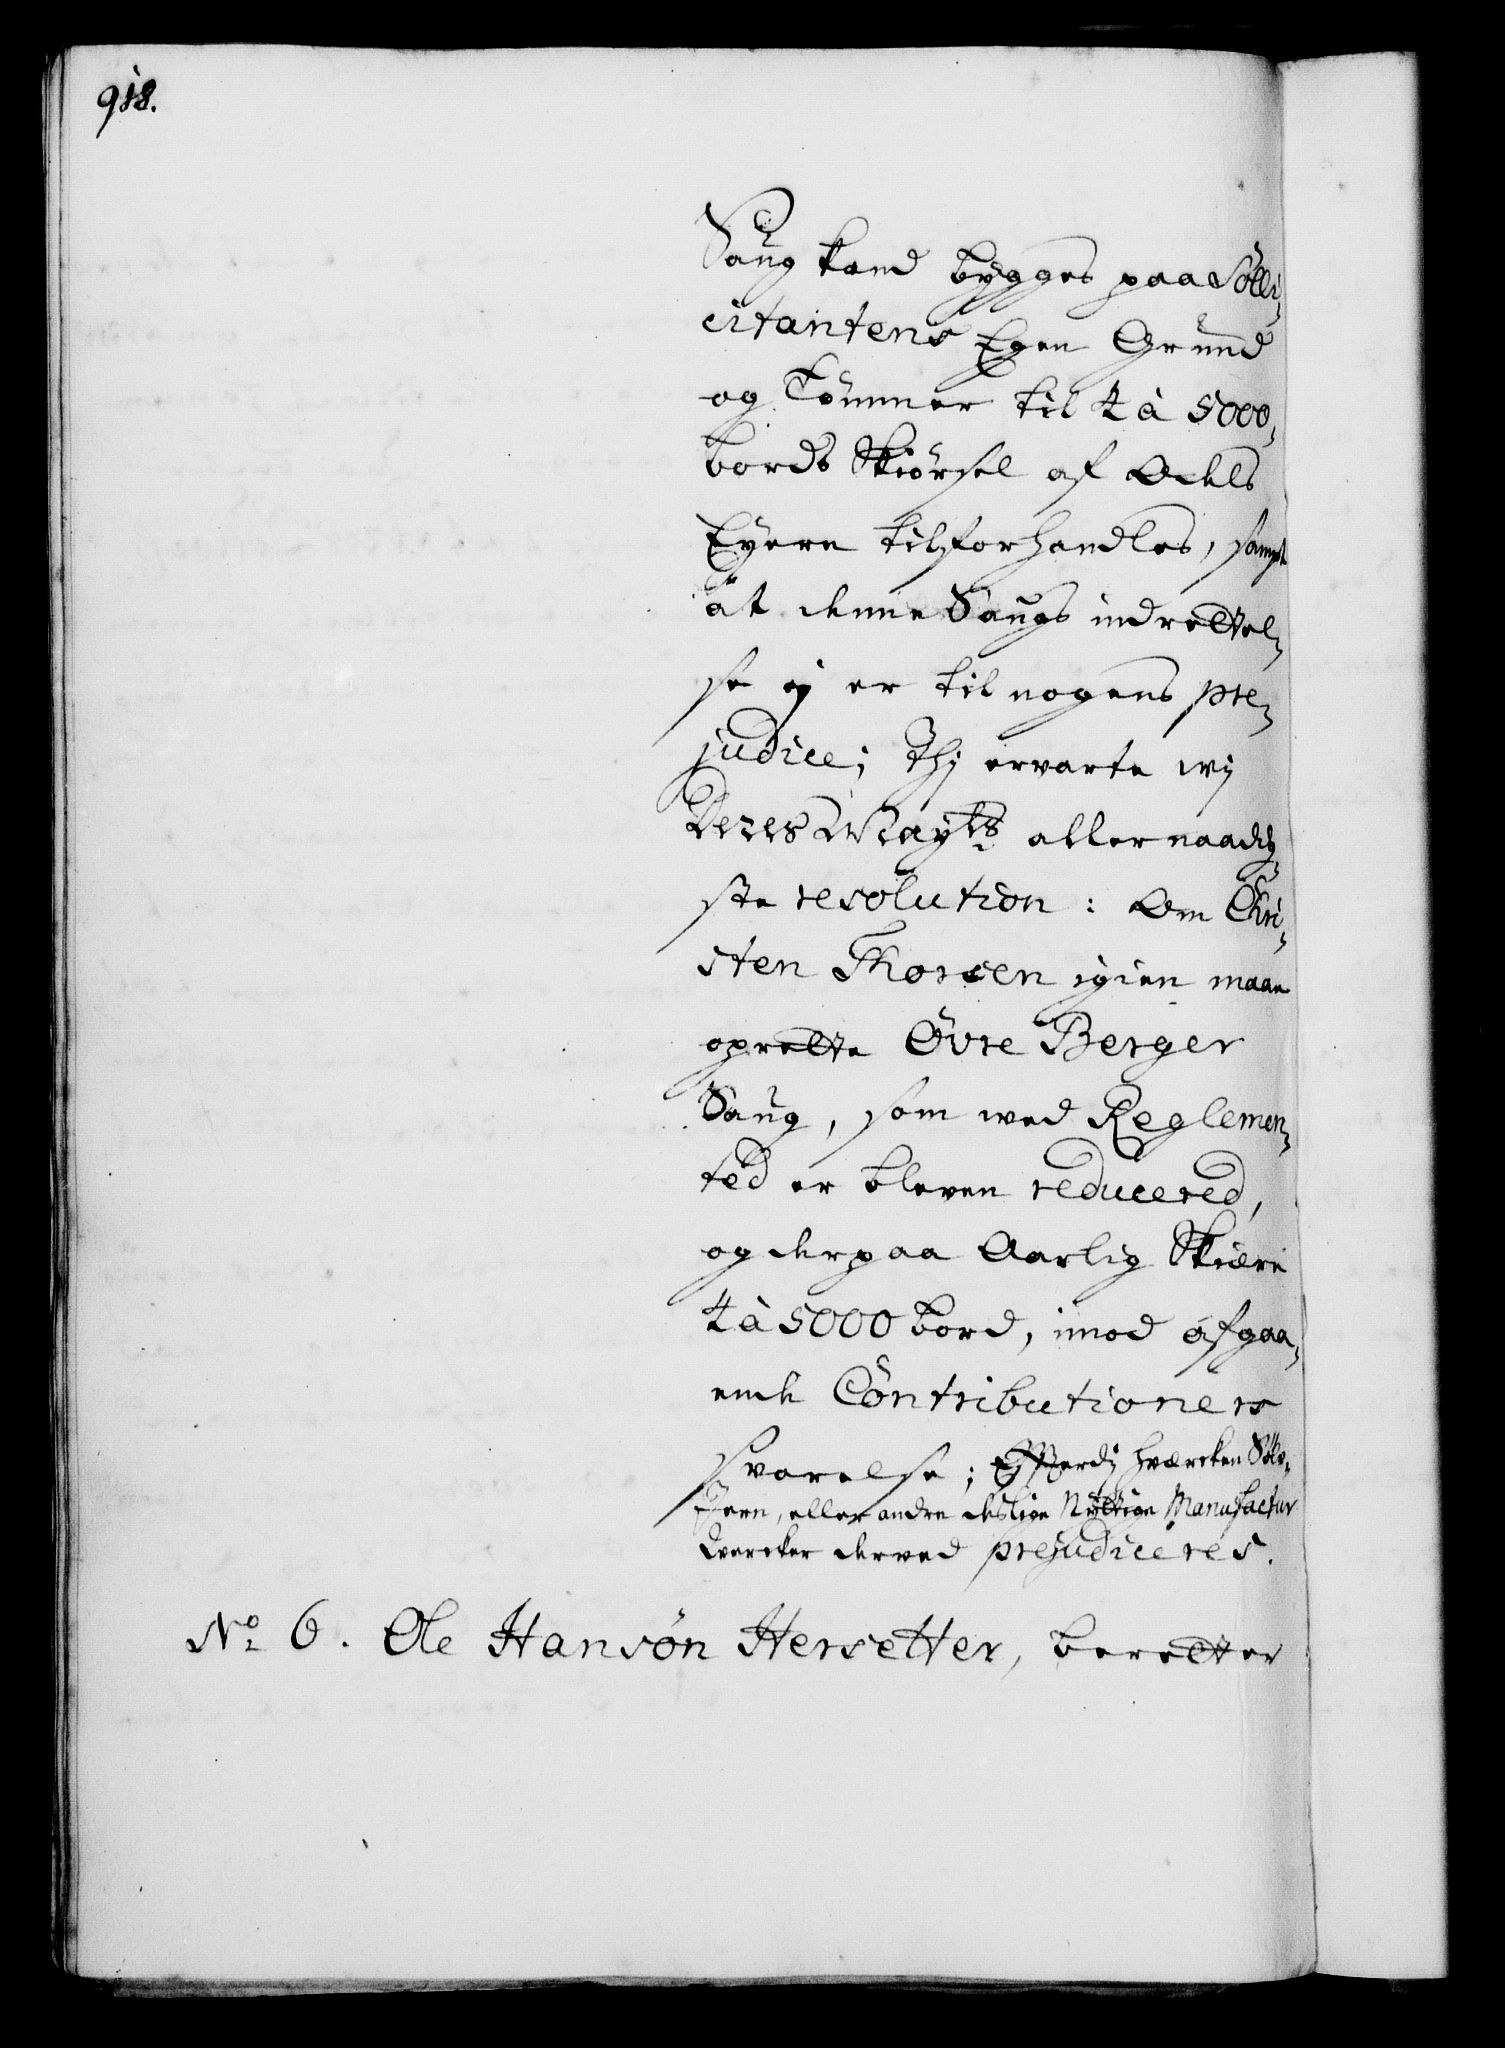 918.
Saug kand bygges paa Solli¬
citantens Egen Grund
og Tømmer til 4 à 5000
bords Skiørsel af Odels
Eyere tilforhandles, sampt
at denne Saugs indrettel¬
se ej er til nogens pre¬
judice; Thj ervarte wij
Deres Mayts allernaadig¬
ste resolution: Om Chri¬
sten Thorsen igien maae
oprette Øvre Berger
Saug, som wed Reglemen¬
ted er bleven reducered,
og derpaa Aarlig Skiære
4 à 5000 bord, imod afgaa¬
ende Contributioners
svarelse; Efterdj hvercken Sølv¬
Jern, eller andre deslige Nyttige Manufactur
Vercker derved prejudiceres.
No 6. Ole Hansøn Hersetter, beretter